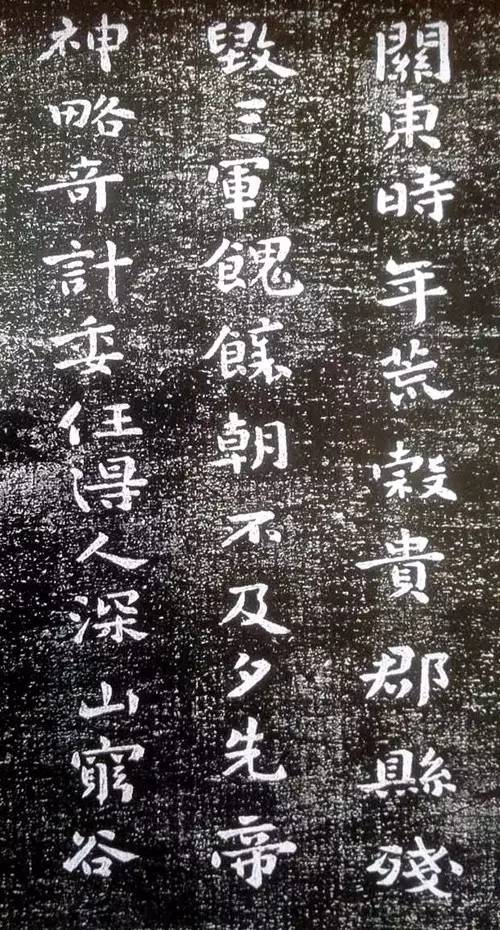 關東時年荒榖貴郡縣殘
毀三軍餽饟朝不及夕先帝
神略奇計委任得人深山窮谷